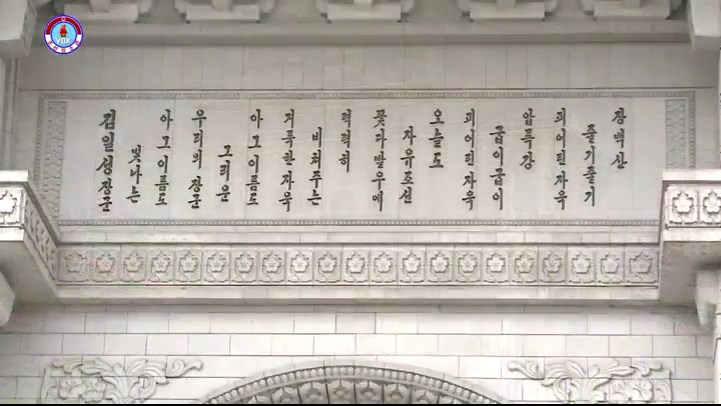 장백산
줄기줄기
피어린 자욱
압록강
굽이굽이
피어린 자욱
오늘도
자유조선
꽃다발우에
력력히
비쳐주는
거룩한 자욱
아 그 이름도
그리운
우리의 장군
아 그 이름도
빛나는
김일성장군
VOK